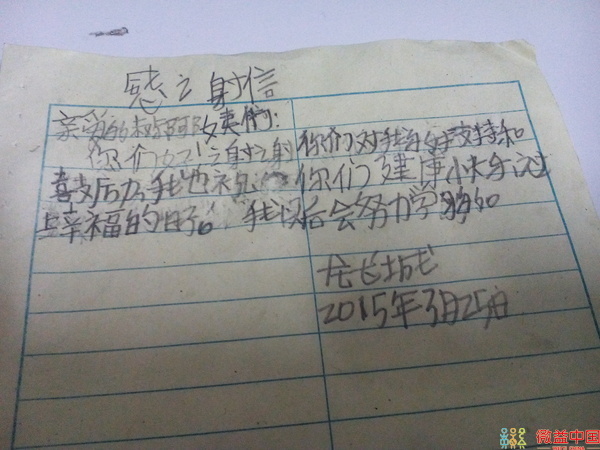 感讠射信
亲爱的树阿 们:
你们好!讠射讠射你们对我 支持和
喜 我也祝 你们建康快乐过
上幸福的日子。我以后会努力学 知
龙长城
2015年3月25日
微益中国